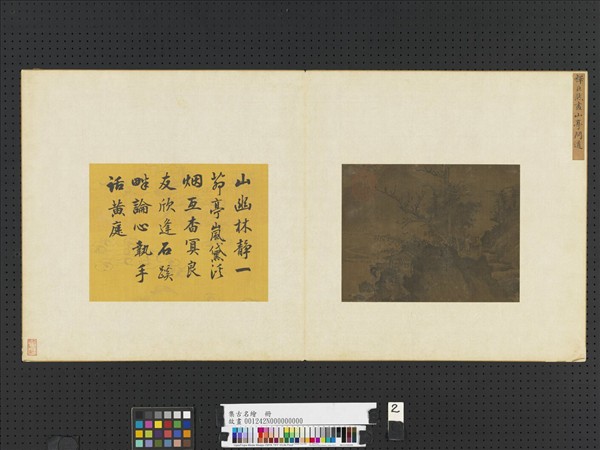 山幽林靜一
茆亭嵐黛浮
烟互杳冥良
友欣逢石蹊
畔論心執手
話黃庭
集古名繪 冊
故畫 001242N000000000
2